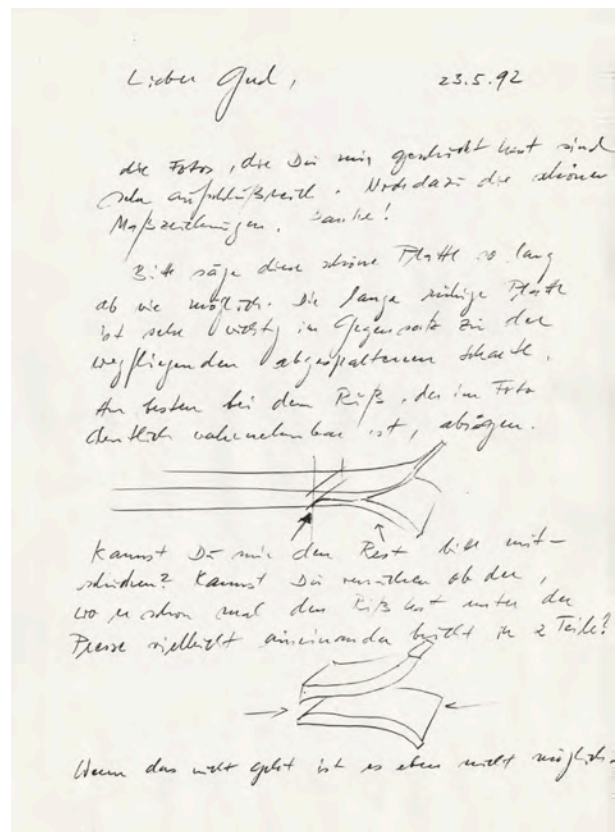 Lieber Gud, 23.5.92
die Fotos, die Du mir geschickt hast sind
sehr aufschlußreich. Noch dazu die schönen
Maßzeichnungen. Danke!
Bitte säge diese schöne Platte so lang
ab wie möglich. Die lange ruhige Platte
ist sehr wichtig im Gegensatz zu der
wegfliegenden abgespaltenen
Am besten bei dem Riß, der im Foto
deutlich wahrnehmbar ist, absägen.
Kannst Du mir den Rest bitte mit-
schicken? Kannst Du versuchen ob der,
wo er schon mal den Riß hat unter der
Presse vielleicht auseinander bricht in 2 Teile?
Wenn das nicht geht ist es eben nicht möglich.